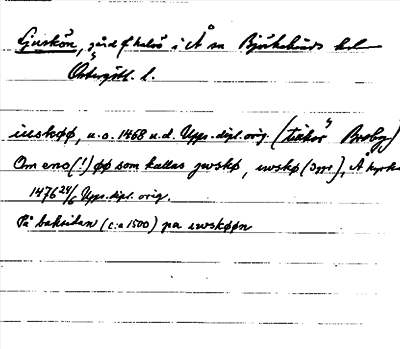 Ljuskön, gård f halvö i Å sn Björkekinds hd
Östergötl. l.
iuskøø, u.o. 1468 u.d. Upps. dipl. orig. (
Om eno (!) øø som kallas jwskø, iwskø (3ggr), Å kyrka
1476 24/6 Upps. dipl. orig.
På baksidan (c:a 1500) pa iwskøøn